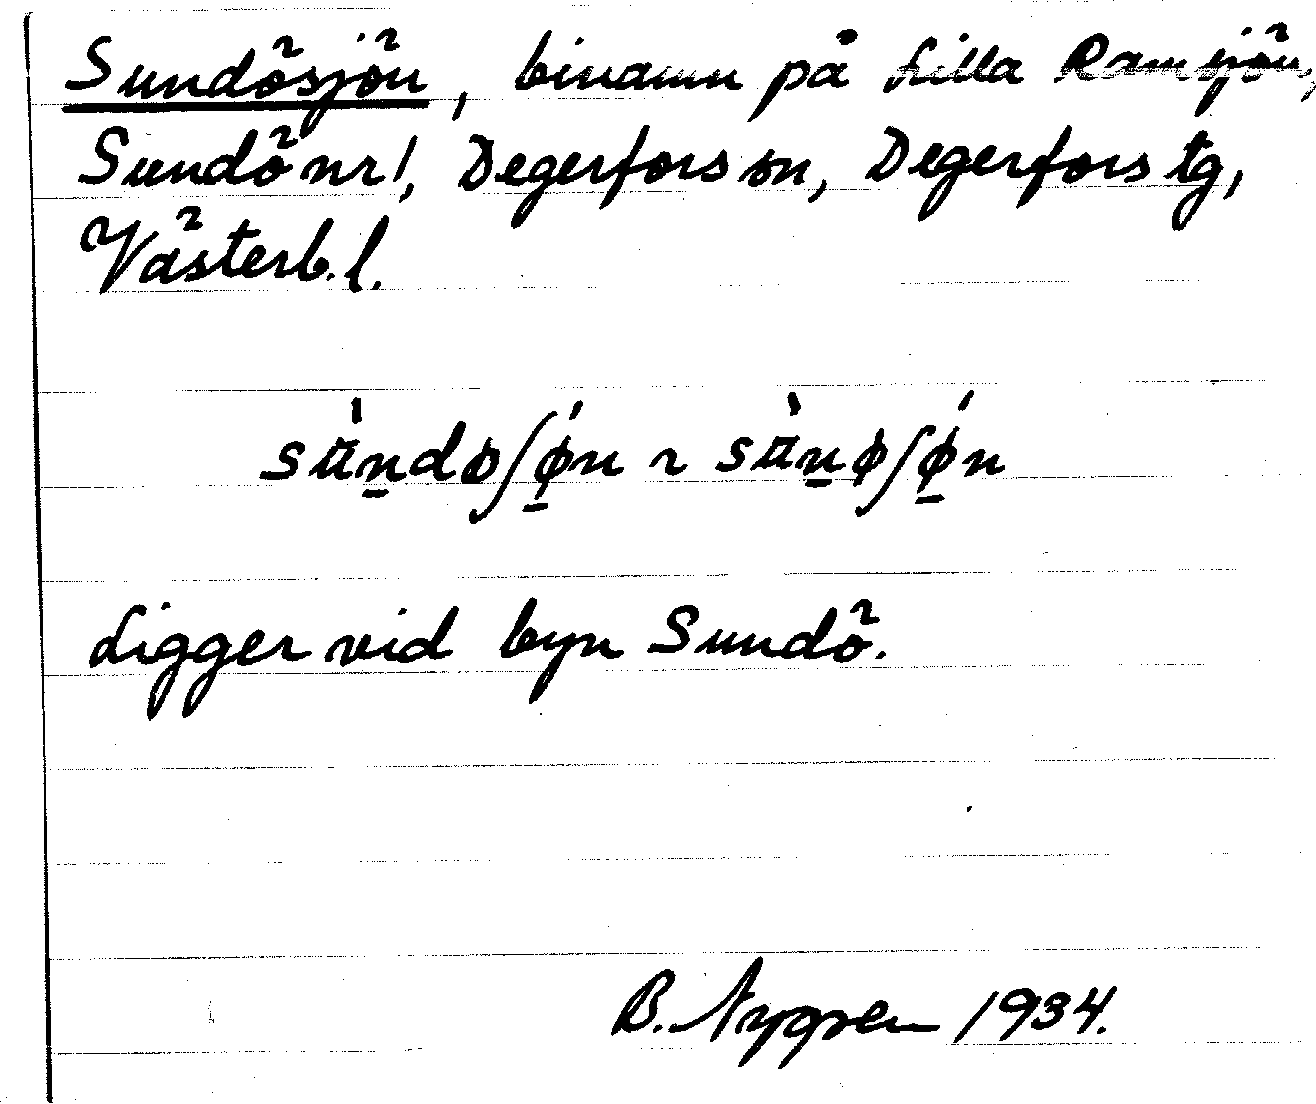 Sundösjön, binamn på Lilla Ramsjön,
Sundö nr 1, Degerfors sn, Degerfors tg,
Västerb. l.
Ligger vid byn Sundö.
B. Nygren 1934.